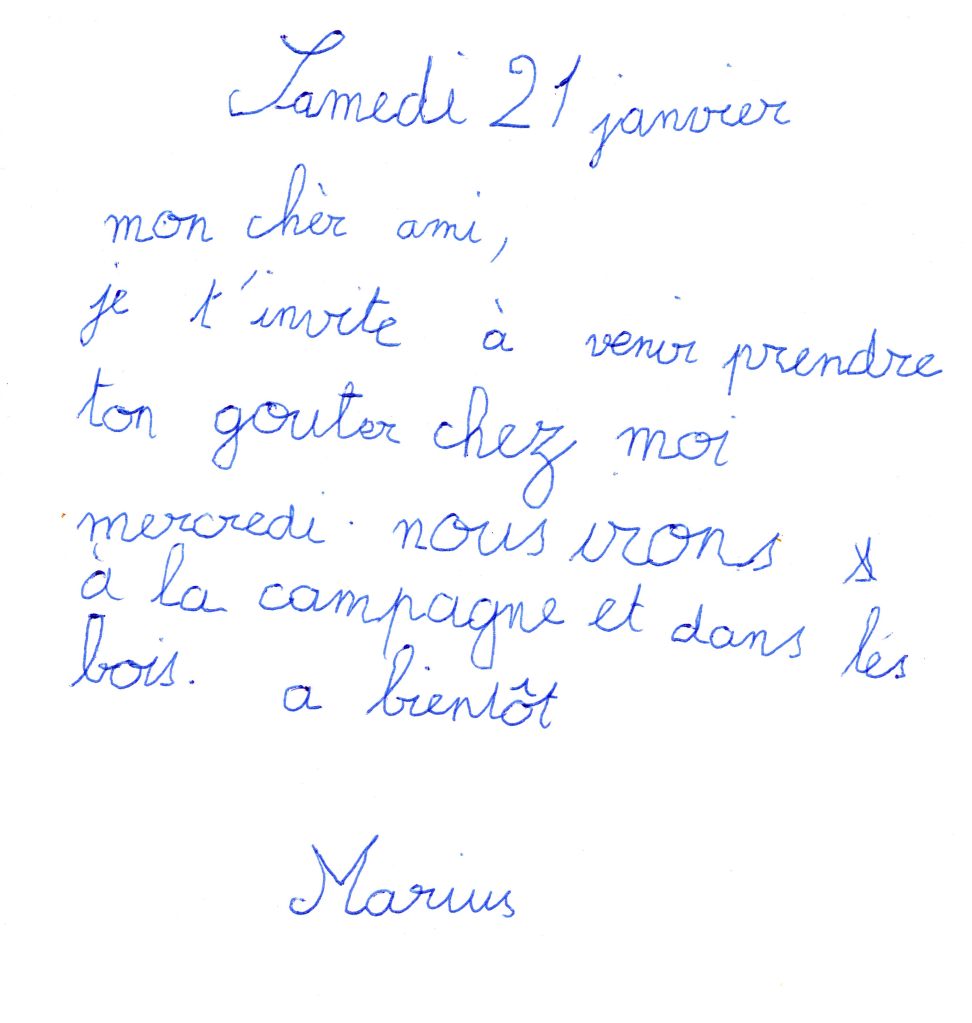 Samedi 21 janvier
mon chèr ami,
je t'invite à venir prendre
ton gouter chez moi
mercredi. nous irons
à la campagne et dans lés
bois. a bientôt
Marius